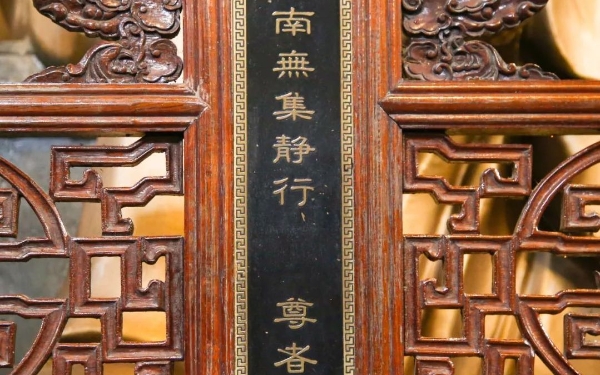 南無集静行、尊者